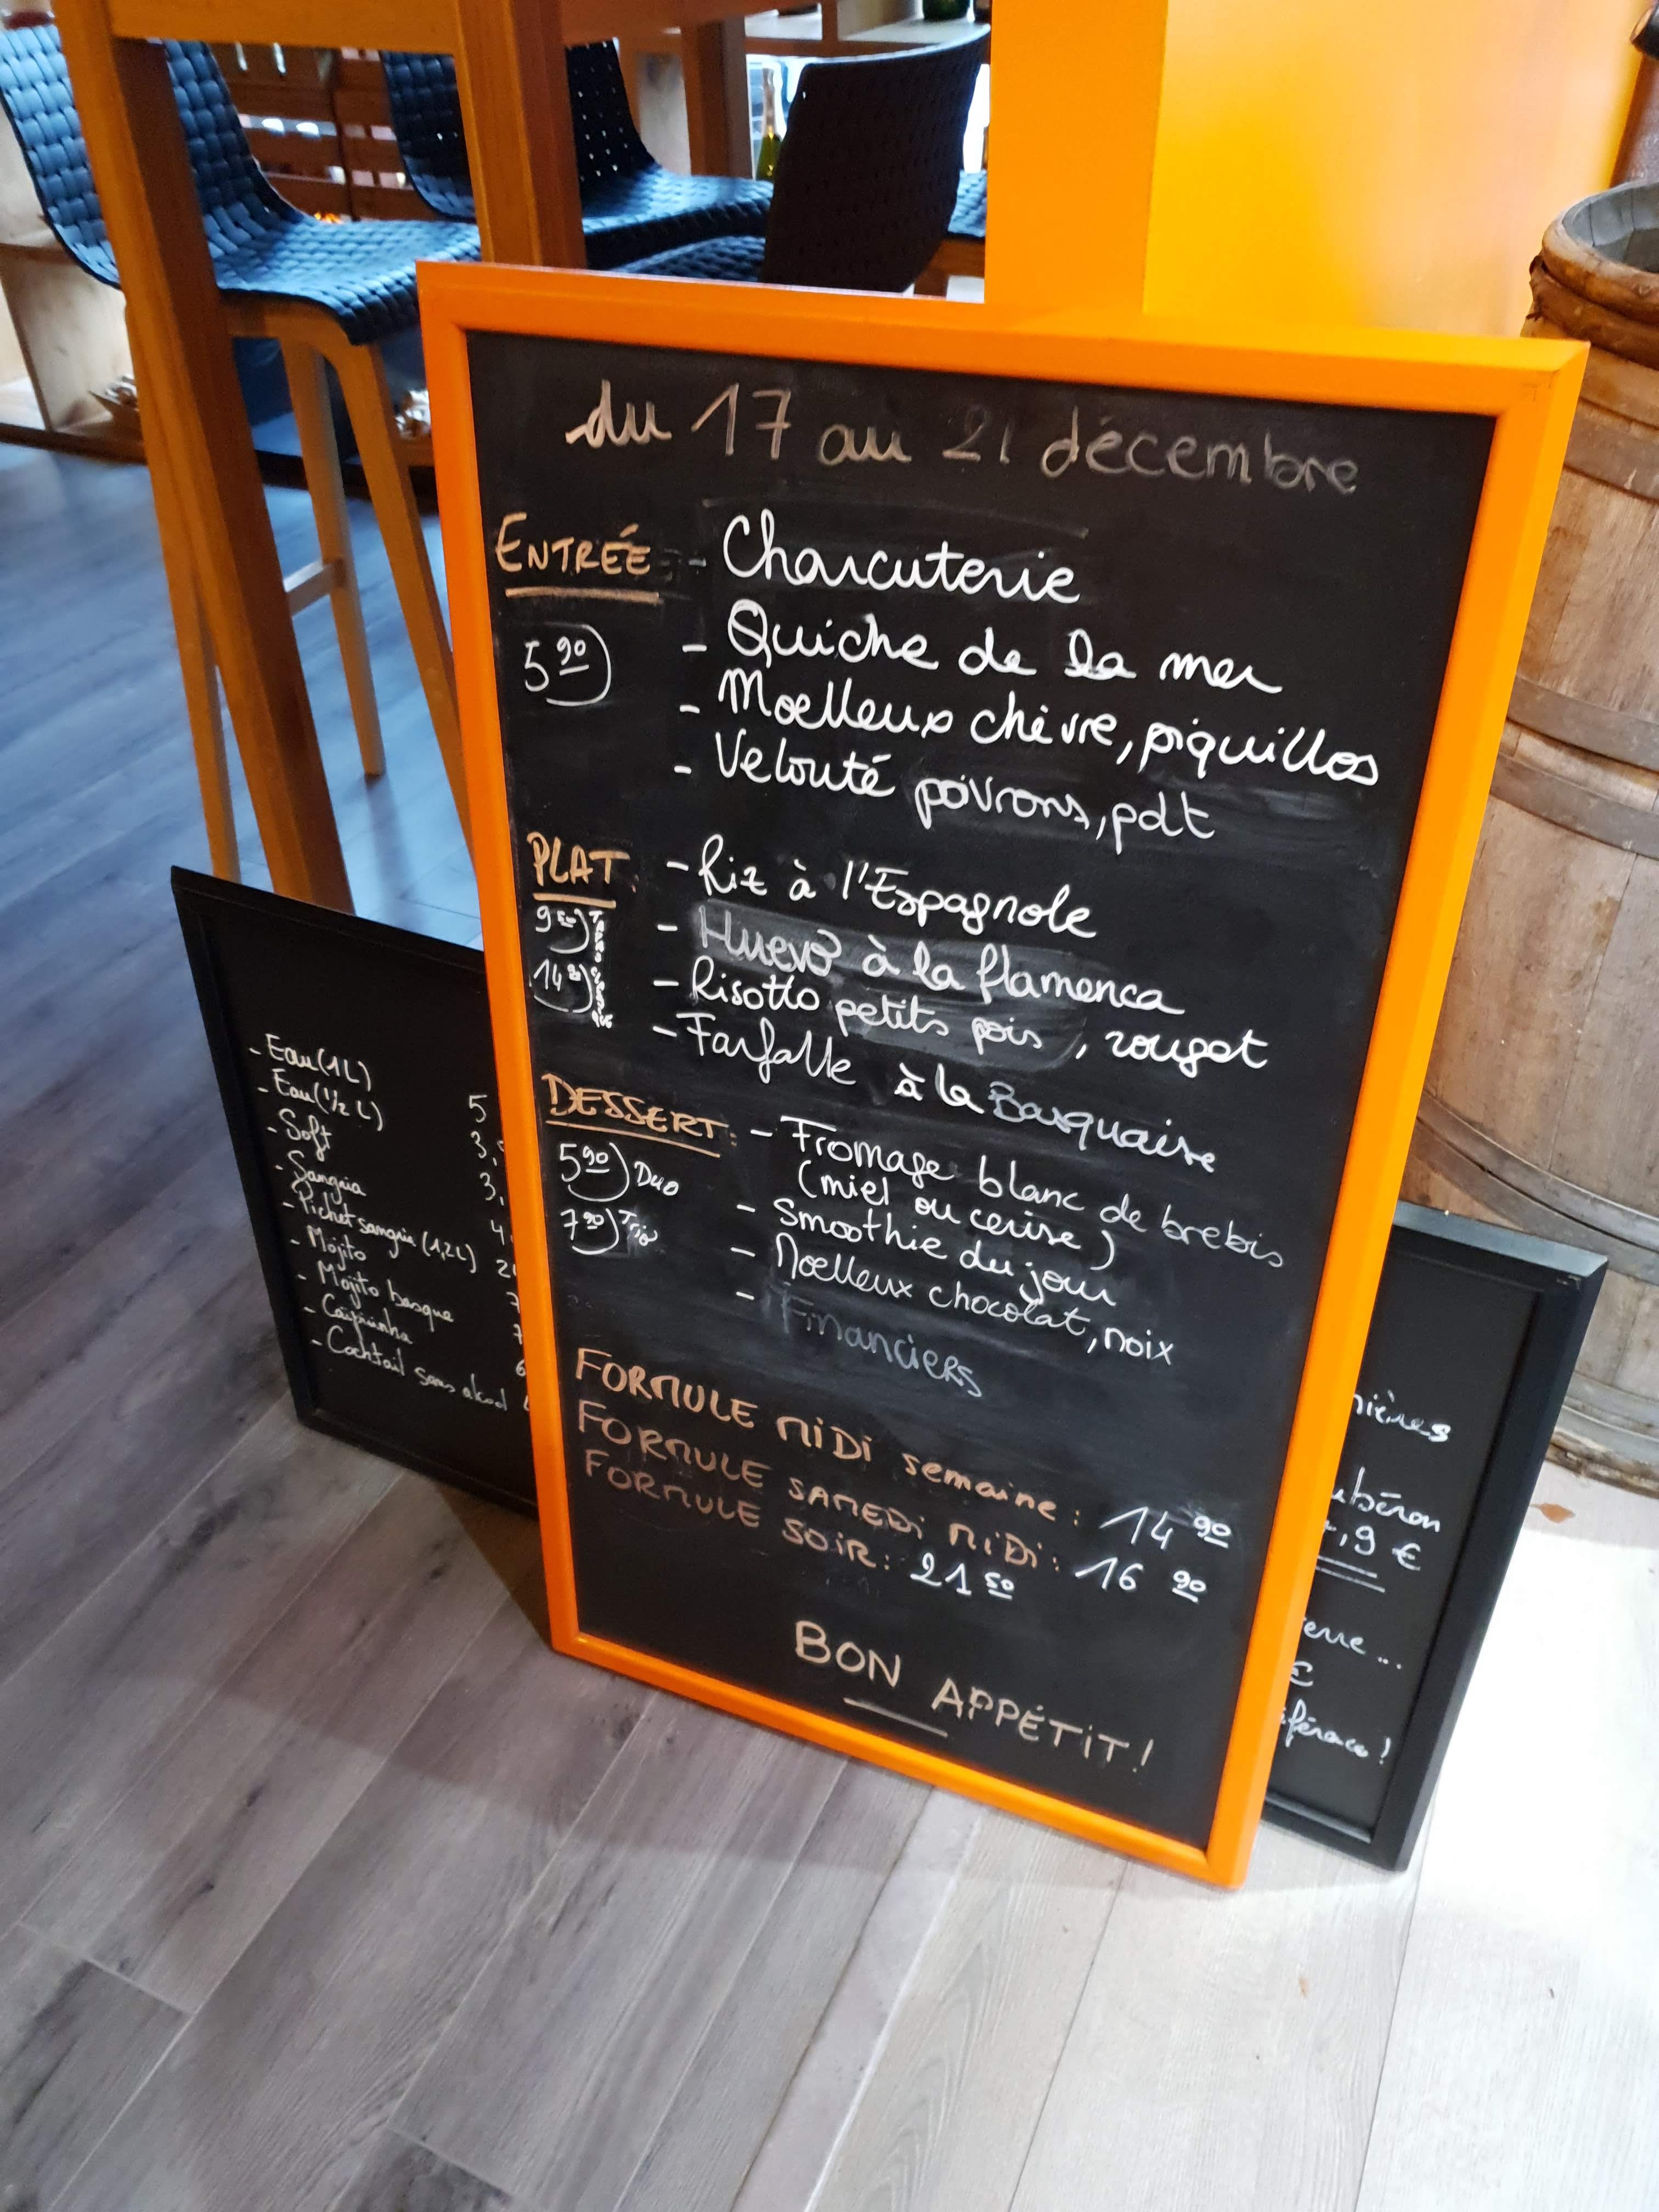 du 17 au 21 décembre
ENTRÉE - Charcuterie
5 90
- Quiche de la mer
- Moelleux chèvre, piquillos
- Velouté poivrons, pdt
PLAT - Riz à l'Espagnole
9 50
- Huevo à la flamenca
14 90
- Risotto petits pois, rouget
- Farfalle à la Basquaise
DESSERT: - Fromage blanc de brebis
(miel ou cerise)
5 90 Duo
- Smoothie du jour
7 90 Trio
- Moelleux chocolat, noix
- Financiers
FORMULE MiDi semaine: 14 90
FORMULE SAMEDi MiDi: 16 90
FORMULE SOiR: 21 50
BON APPÉTiT!
- Eau (1L) 5
- Eau (1/2 L) 3,
- Soft 3,
- Sangria 4
- Pichet sangria (1,2L) 2
- Mojito 7
- Mojito basque 7
- Caïpirinha 6
- Cocktail sans alcool
nières
ubéron
,9 €
erre...
€
férence!